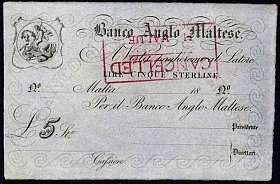 Banco Anglo Maltese.
A Vista pagherò al Latore
LIRE CINQUE STERLINE.
CANCELLED
No. No.
Malta 18
Per il Banco Anglo Maltese.
£5 Ste
Presidente
Direttori
Cassiere